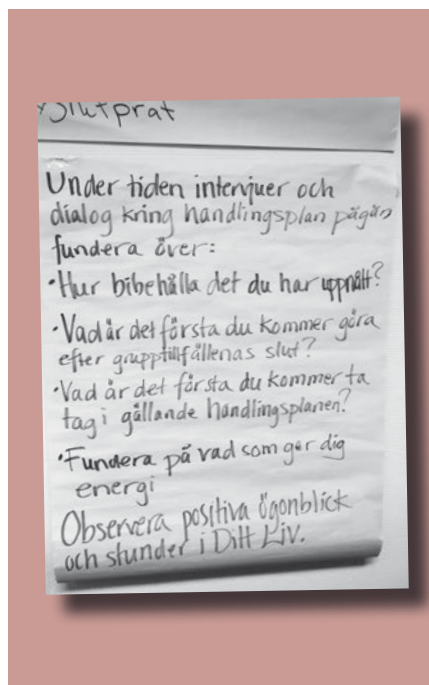 Slutprat
Under tiden intervjuer och
dialog kring handlingsplan pågår
fundera över:
•Hur bibehålla det du har uppnått?
•Vad är det första du kommer göra
efter grupptillfällenas slut?
•Vad är det första du kommer ta
tag i gällande handlingsplanen?
•Fundera på vad som ger dig
energi
Observera positiva ögonblick
och stunder i Ditt Liv.